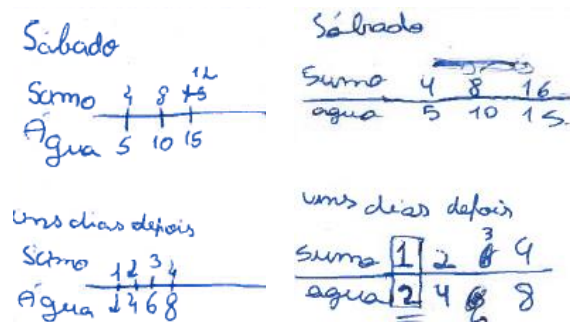 Sábado
Sumo 4 8 12
Água 5 10 15
uns dias depois
Sumo 1 2 3 4
Água 2 4 6 8
Sábado
Sumo 4 8 16
agua 5 10 15
uns dias depois
Sumo 1 2 3 4
agua 2 4 6 8